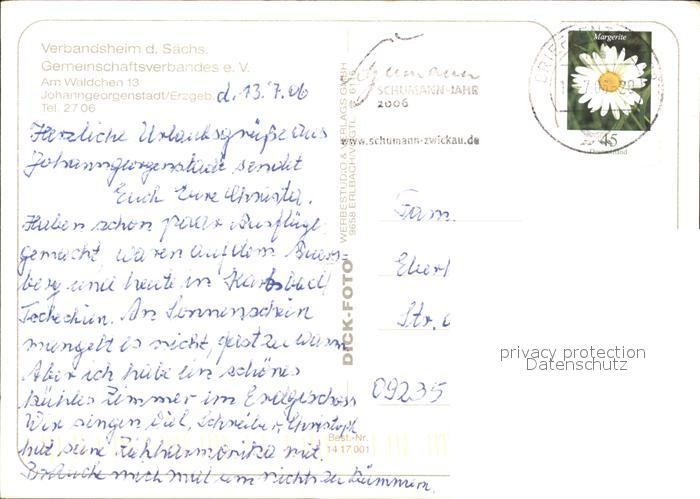 Verbandsheim d. Sächs.
Gemeinschaftsverbandes e. V.
Am Wäldchen 13
Johanngeorgenstadt/Erzgeb.
Tel. 27 06
d. 13.7.06
Herzliche Urlaubsgrüße aus
Johanngeorgenstadt sendet
Euch Eure Christa.
Haben schon paar Ausflüge
gemacht, waren auf dem Auers-
berg und heute in Karlsbad/
Tschechien. An Sonnenschein
mangelt es nicht, fast zu warm
Aber ich habe ein schönes
kühles Zimmer im Erdgeschoss
Wir singen viel, Christoph
hat seine Ziehharmonika mit.
Brauche mich mal um nichts zu kümmern.
WERBESTUDIO & VERLAGS GMBH
9658 ERLBACH/VOGTL.
DICK-FOTO
Best.-Nr.
14 17 001
Schumann
SCHUMANN-JAHR
2006
www.schumann-zwickau.de
Margerite
45
Deutschland
Fam.
Ebert
Str.
09235
privacy protection
Datenschutz